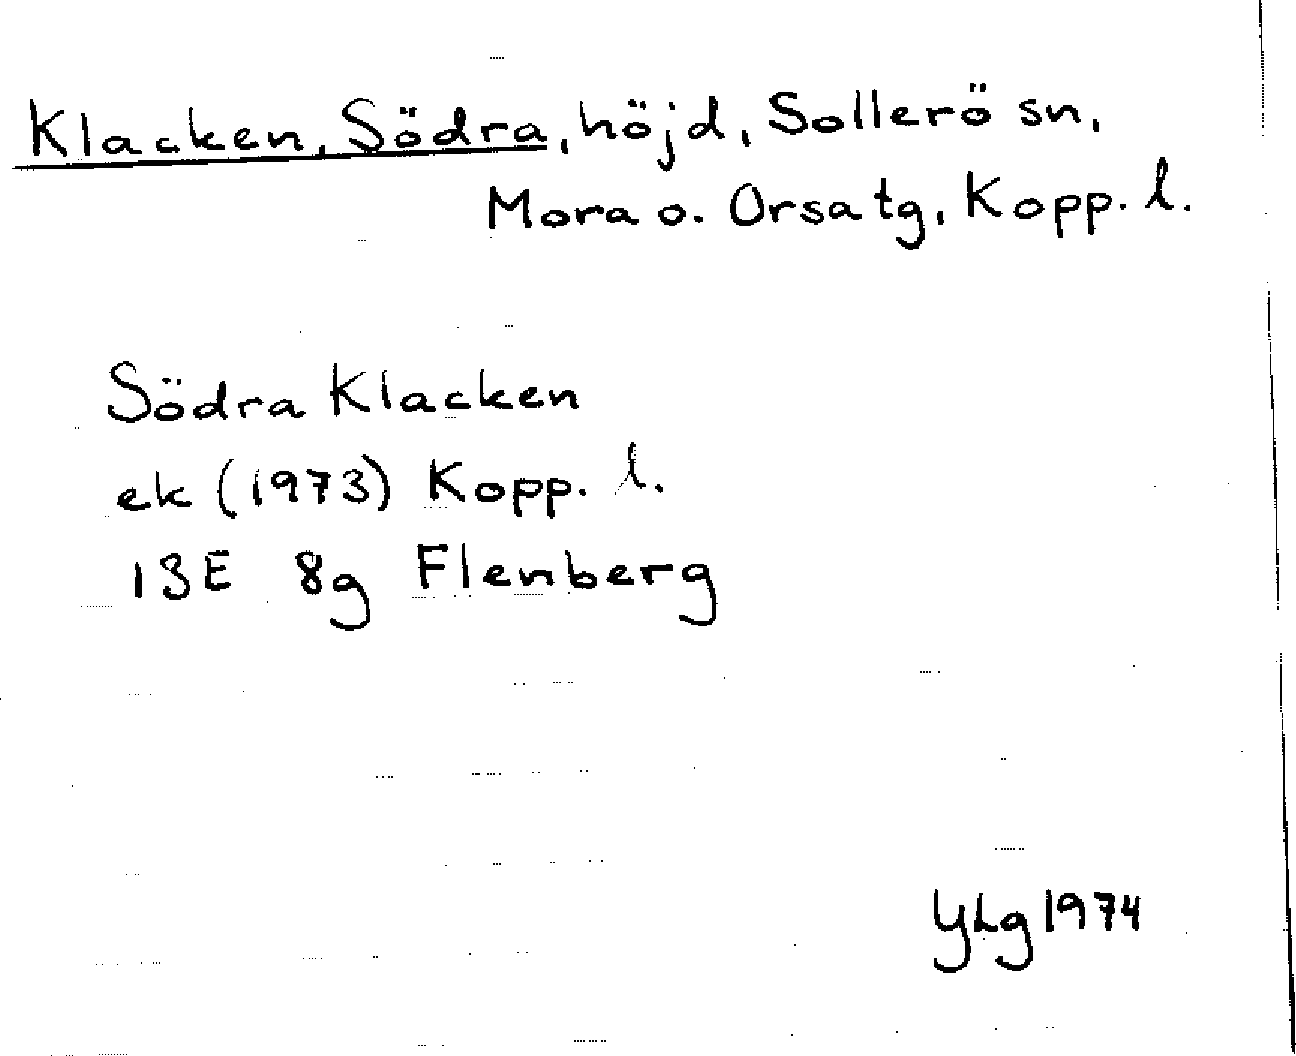 Klacken, Södra, höjd, Sollerö sn,
Mora o. Orsa tg, Kopp. l.
Södra Klacken
ek (1973) Kopp. l.
13E 8g Flenberg
YLg 1974